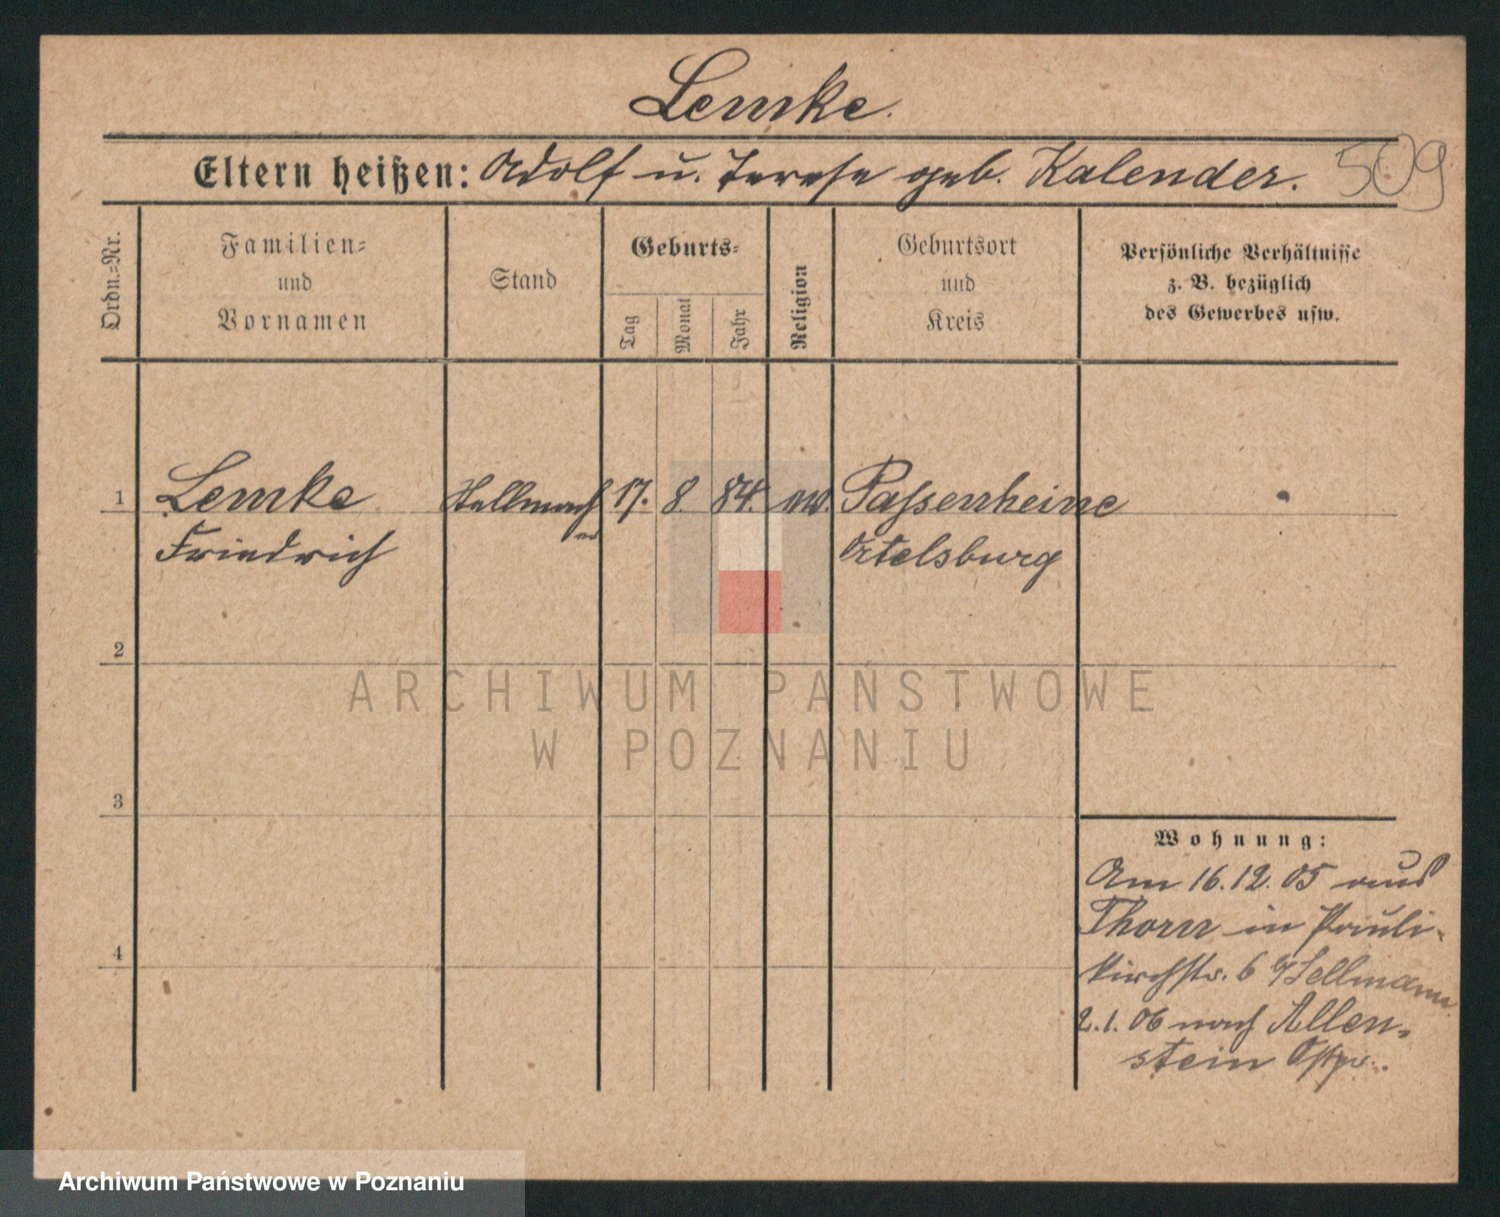 Lemke.
Eltern heißen: Adolf u. Terese geb. Kalender.
509
Ordn.=Nr.
Familien=
und
Vornamen
Stand
Geburts=
Tag
Monat
Jahr
Religion
Geburtsort
und
Kreis
Persönliche Verhältnisse
z. B. bezüglich
des Gewerbes usw.
1
Lemke
Stellmach
er
17.
8
84.
ev.
Passenheim
Friedrich
Ortelsburg
2
ARCHIWUM PAŃSTWOWE
W POZNANIU
3
Wohnung:
Am 16.12.05 aus
Thorn in Pauli-
kirchstr. 6 b/Sellmann
4
2.1.06 nach Allen-
stein Ostpr.
Archiwum Państwowe w Poznaniu